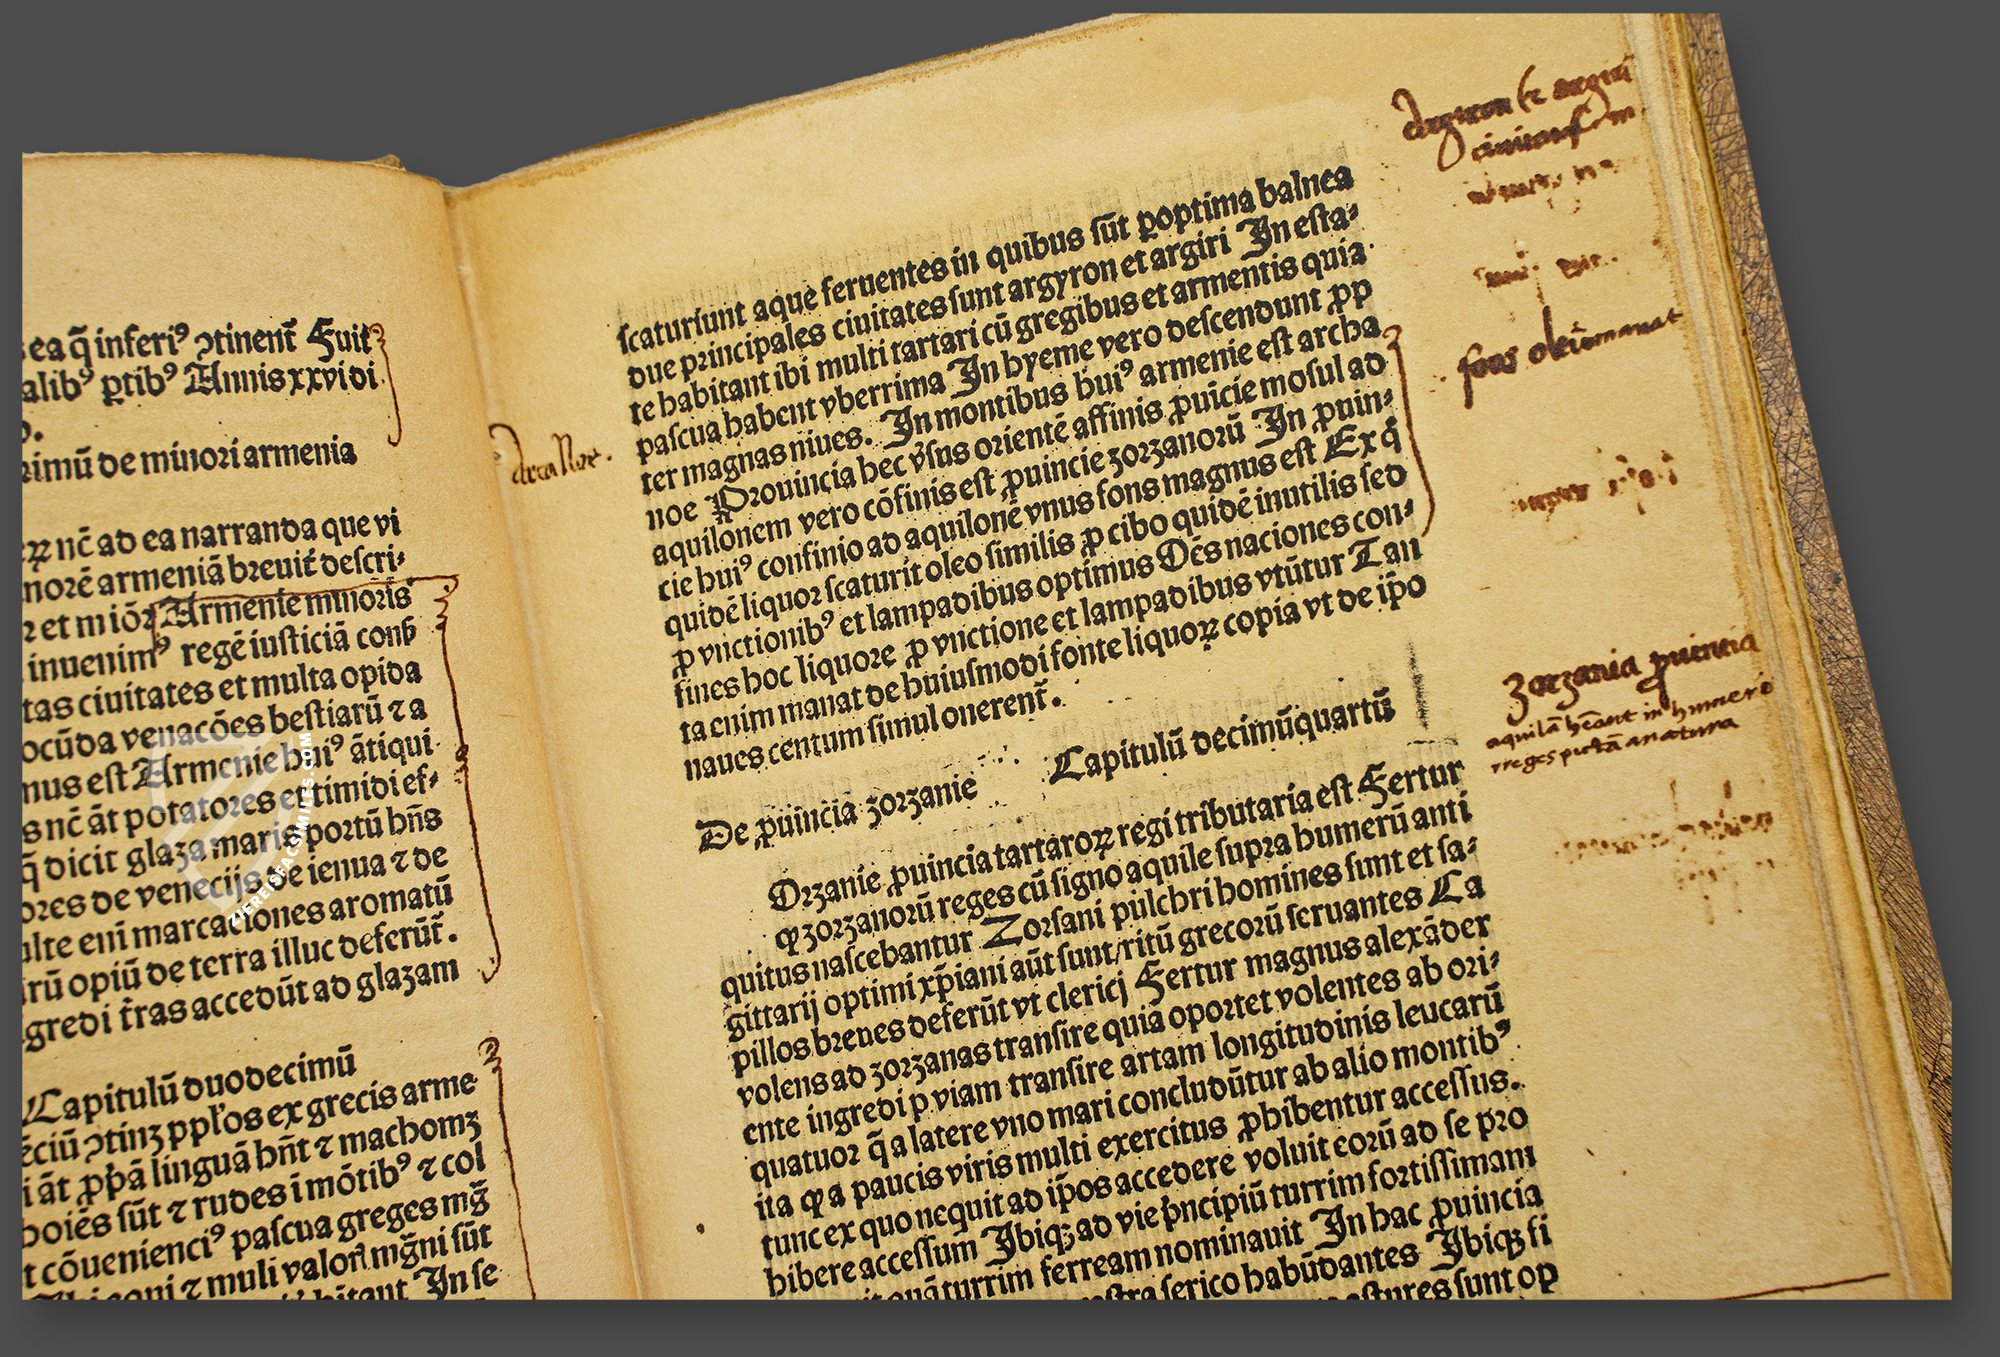 ea q̄ inferiꝰ ↄtinent̄ Fuit
alibꝰ ꝑtibꝰ Annis xxvi di
rimū de minori armenia
nc̄ ad ea narranda que vi
norē armeniā breuit̄ descri⸗
et miōꝝ Armenie minoris
inuenimꝰ regē iusticiā cons̄
tas ciuitates et multa opida
ocūda venacōes bestiarū ⁊ a
mus est Armenie huiꝰ ātiqui
s nc̄ āt potatores et timidi ef⸗
q̄ dicit glaza maris portū hn̄s
ores de venecijs de ienua ⁊ de
ulte enī marcaciones aromatū
rū opiū de terra illuc deferūt̄.
gredi t̄ras accedūt ad glazam
Capitulū duodecimū
ciū ↄtinꝫ ppl̄os ex grecis arme
i āt ꝓpā linguā hn̄t ⁊ machomꝫ
hoiēs sūt ⁊ rudes ī mōtibꝰ ⁊ col
t cōuenienciꝰ pascua greges mḡ
equi ⁊ muli valorꝭ mḡni sūt
hītant In se
arca Noe.
scaturiunt aque feruentes in quibus sūt ꝑoptima balnea
due principales ciuitates sunt argyron et argiri In esta⸗
te habitant ibi multi tartari cū gregibus et armentis quia
pascua habent vberrima In hyeme vero descendunt ꝓp
ter magnas niues. In montibus huiꝰ armenie est archa
noe Prouincia hec v̓sus orientē affinis ꝓuicie mosul ad
aquilonem vero cōfinis est ꝓuincie zorzanorū In ꝓuin⸗
cie huiꝰ confinio ad aquilonē vnus fons magnus est Ex q̊
quidē liquor scaturit oleo similis ꝓ cibo quidē inutilis sed
ꝓ vnctionibꝰ et lampadibus optimus Oēs naciones con⸗
fines hoc liquore ꝓ vnctione et lampadibus vtūtur Tan
ta enim manat de huiusmodi fonte liquorꝝ copia vt de ip̄o
naues centum simul onerent̄.
De ꝓuincia zorzanie Capitulū decimūquartū
Orzanie ꝓuincia tartarorꝝ regi tributaria est Fertur
ꝙ zorzanorū reges cū signo aquile supra humerū anti
quitus nascebantur Zorsani pulchri homines sunt et sa⸗
gittarij optimi xp̄iani aūt sunt/ritū grecorū seruantes Ca
pillos breues deferūt vt clericj Fertur magnus alexāder
volens ad zorzanas transire quia oportet volentes ab ori⸗
ente ingredi p viam transire artam longitudinis leucarū
quatuor q̄ a latere vno mari concludūtur ab alio montibꝰ
ita ꝙ a paucis viris multi exercitus ꝓhibentur accessus.
tunc ex quo nequit ad ip̄os accedere voluit eorū ad se pro
hibere accessum Ibiqꝫ ad vie p̄ncipiū turrim fortissimam
quā turrim ferream nominauit In hac ꝓuincia
serico habūdantes Ibiqꝫ fi
astures sunt op
argiron ⁊ argiri
fons olei manat
Zorzania ꝓuincia
aquilā hēant in humero
rreges pictā a natura
ZIEREISFACSIMILES.COM